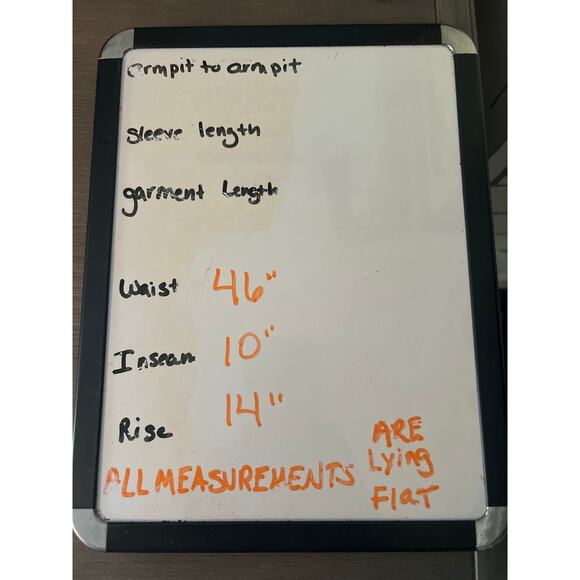 armpit to armpit
sleeve length
garment Length
Waist 46"
Inseam 10"
Rise 14"
ALL MEASUREMENTS ARE
Lying
FLaT